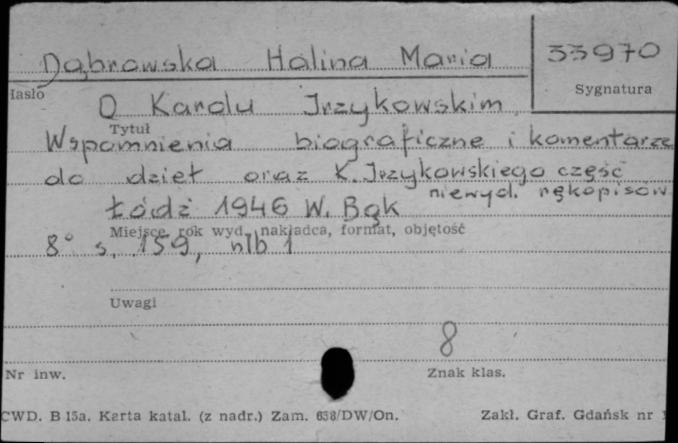 Dąbrowska Halina Maria 33970
Hasło Sygnatura
O Karolu Irzykowskim
Tytuł
Wspomnienia biograficzne i komentarze
do dzieł oraz K. Irzykowskiego część
niewyd. rękopisów
Łódź 1946 W. Bąk
Miejsce, rok wyd., nakładca, format, objętość
8° s. 159, nlb 1
Uwagi
8
Nr inw. Znak klas.
CWD. B 15a. Karta katal. (z nadr.) Zam. 638/DW/On. Zakł. Graf. Gdańsk nr